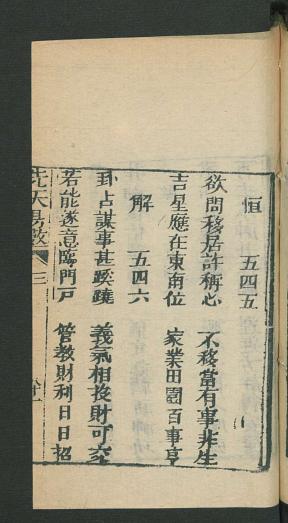 恒 五四五
欲問移居許稱心 不移當有事非生
吉星應在東南位 家業田園百事亨
解 五四六
卦占謀事甚蹊蹺 義氣相投財可交
若能遂意臨門戶 管教財利日日招
先天易數 三